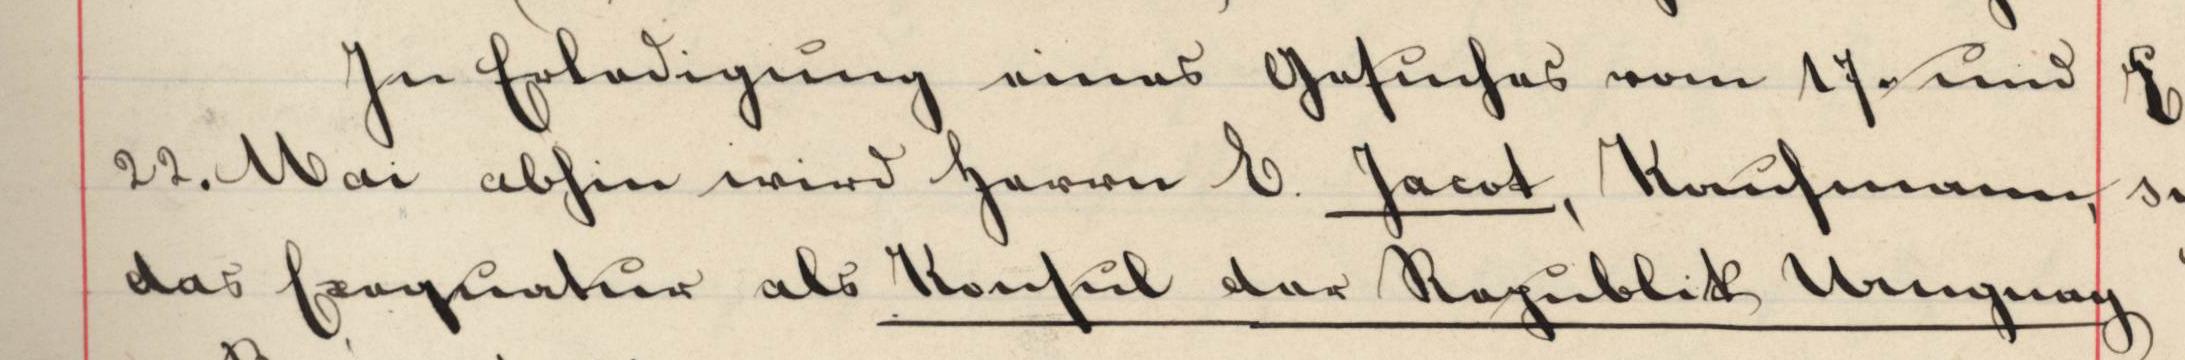 In Erledigung eines Gesuches vom 17. und
22. Mai abhin wird Herrn E. Jacot, Kaufmann,
das Exequatur als Konsul der Republik Uruguay